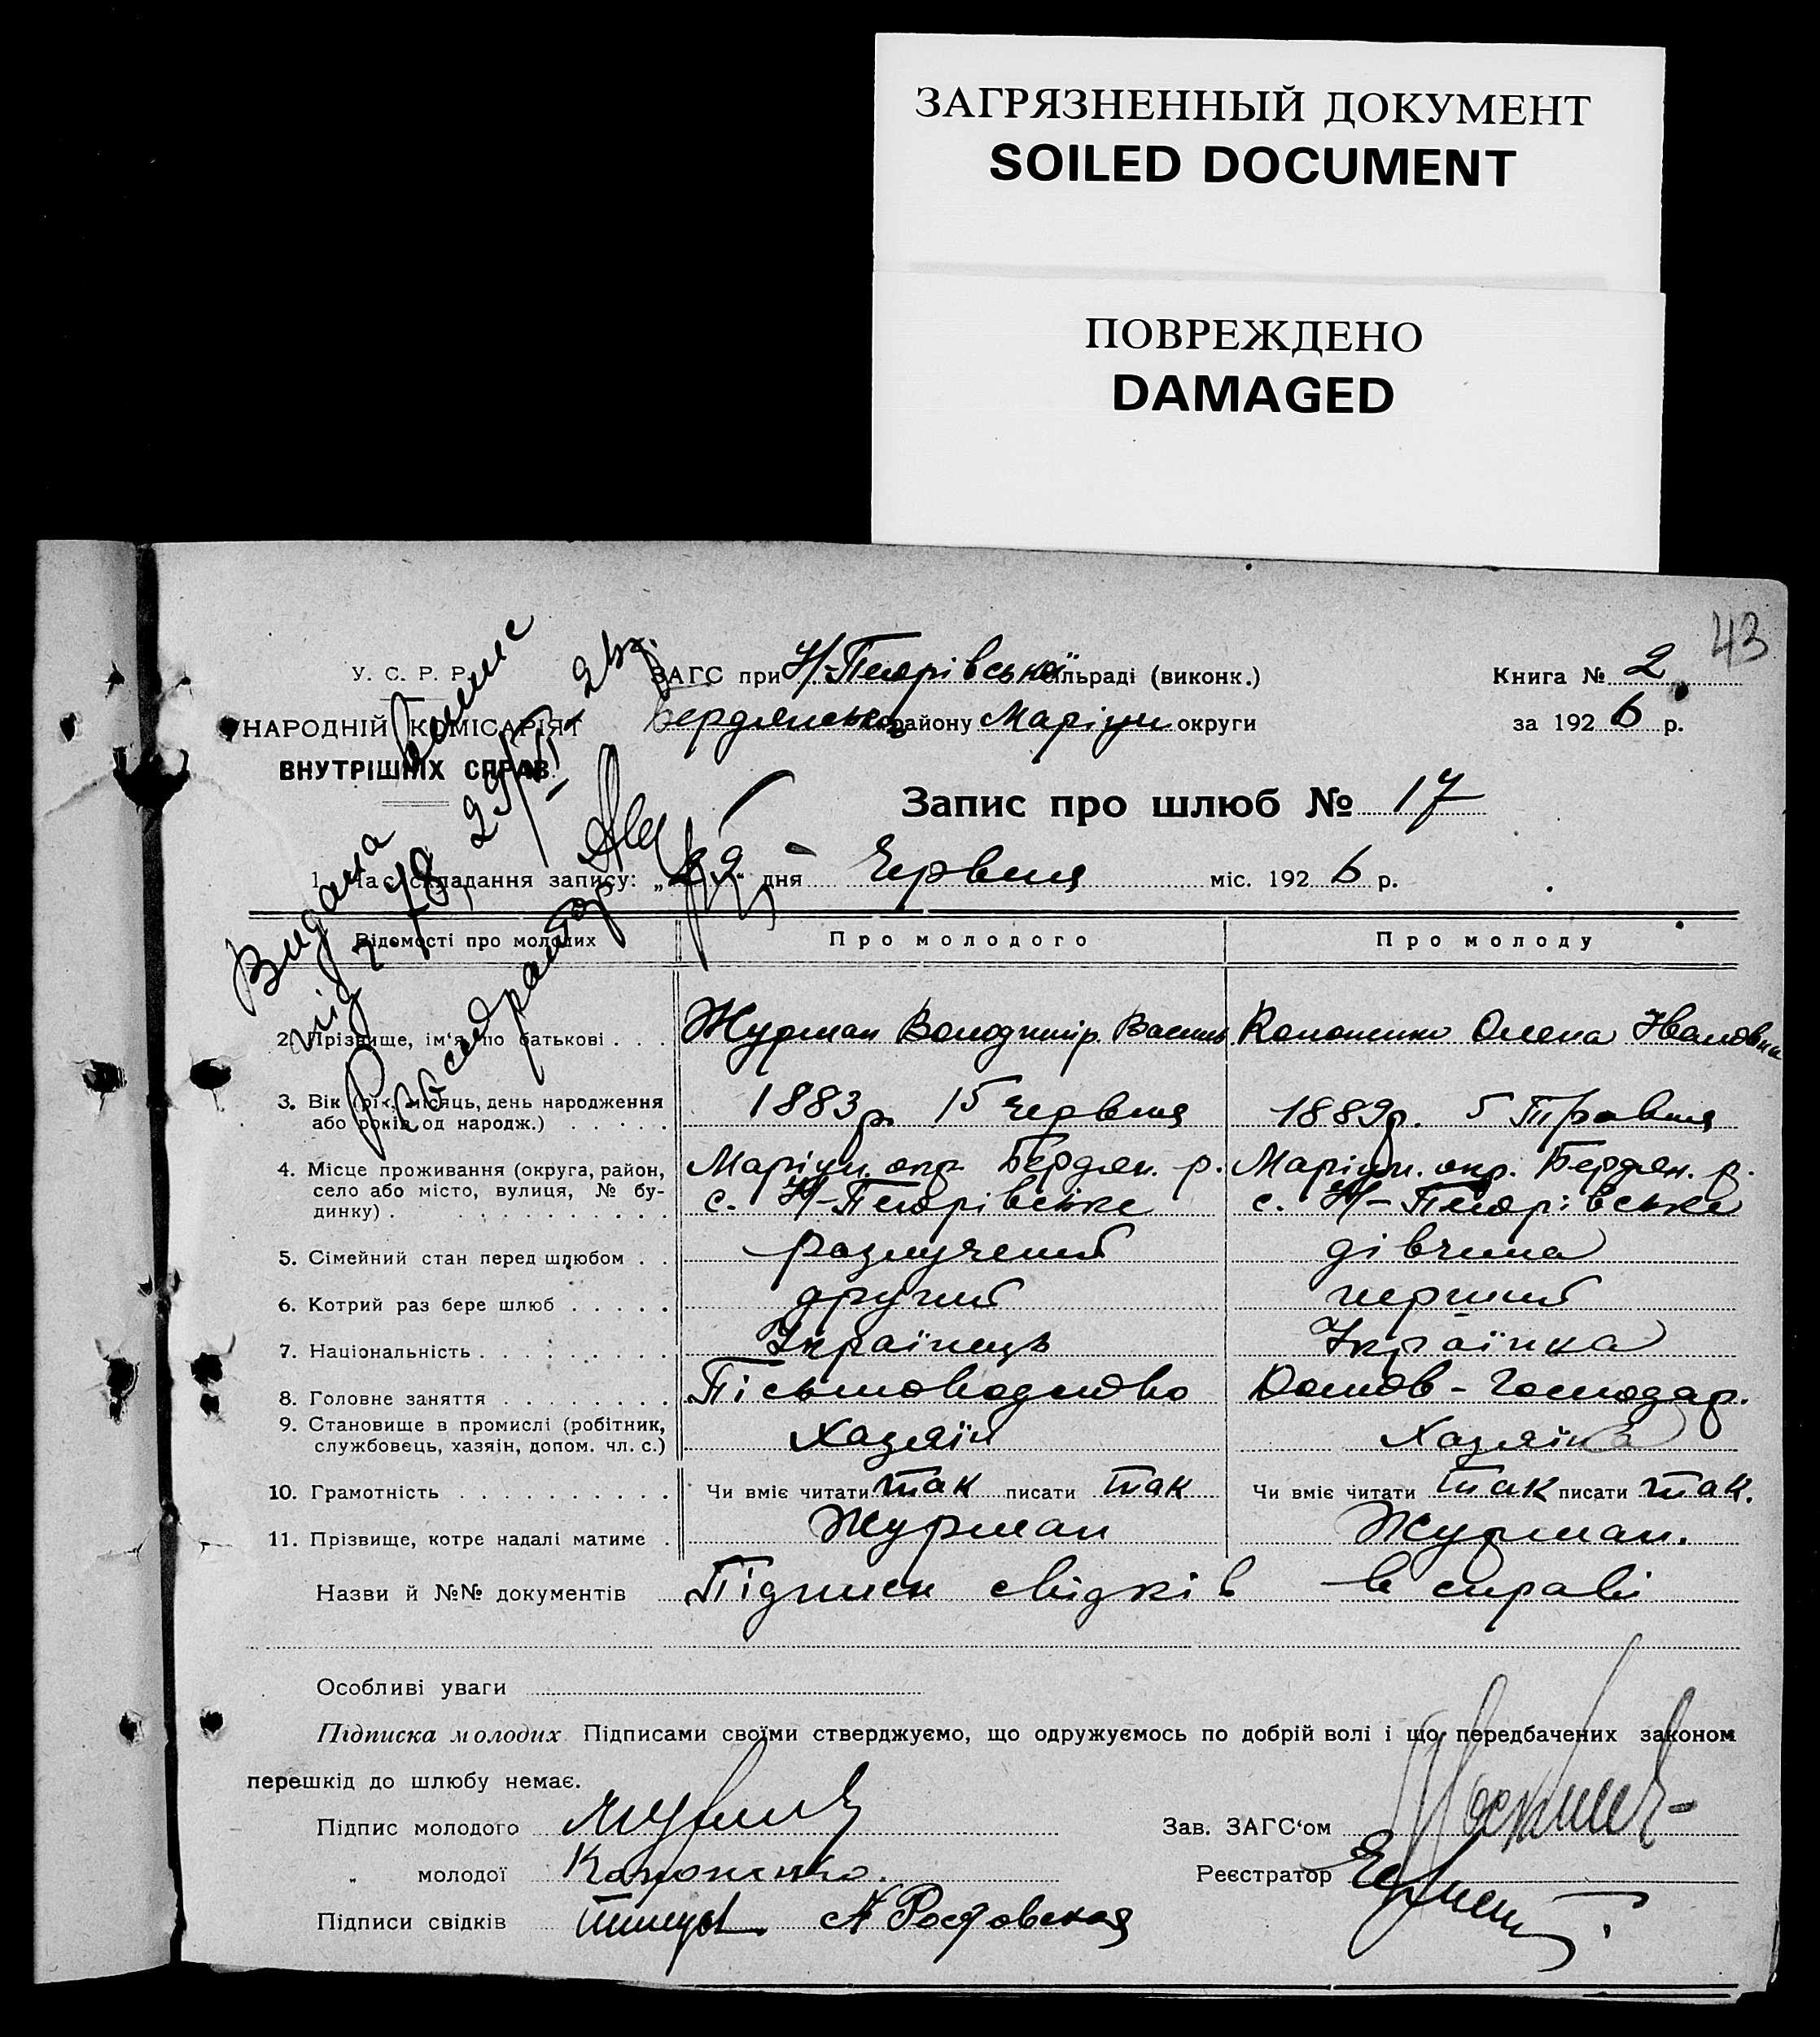 ЗАГРЯЗНЕННЫЙ ДОКУМЕНТ
SOILED DOCUMENT
ПОВРЕЖДЕНО
DAMAGED
43
У. С. Р. Р.
НАРОДНІЙ КОМІСАРІЯТ
ВНУТРІШНІХ СПРАВ
ЗАГС при Н-Петрівській сільраді (виконк.)
Бердянського району Маріуп округи
Книга № 2
за 1926 р.
Запис про шлюб № 17
Видана
Реєстратор
1. Час складання запису: „29“ дня Червня міс. 1926 р.
Відомості про молодих Про молодого Про молоду
2. Прізвище, ім'я, по батькові . . . Журман Володимир Василь. Кононенко Олена Івановна
3. Вік (рік, місяць, день народження
або років од народж.) . . . . . 1883 р. 15 червня 1889 р. 5 Травня
4. Місце проживання (округа, район, Маріуп. окр. Бердян. р. Маріуп. окр. Бердян. р.
село або місто, вулиця, № бу-
динку) . . . . . . . . . . . . с. Н-Петрівське с. Н-Петрівське
5. Сімейний стан перед шлюбом . . разлучений дівчина
6. Котрий раз бере шлюб . . . . . другий перший
7. Національність . . . . . . . . . Українець Українка
8. Головне заняття . . . . . . . . Пісьмоводство Домов-Господар.
9. Становище в промислі (робітник,
службовець, хазяїн, допом. чл. с.) Хазяїн Хазяїка
10. Грамотність . . . . . . . . . . Чи вміє читати так писати так Чи вміє читати так писати так.
11. Прізвище, котре надалі матиме . Журман Журман.
Назви й №№ документів Підписи свідків в справі
Особливі уваги
Підписка молодих Підписами своїми стверджуємо, що одружуємось по добрій волі і що передбачених законом
перешкід до шлюбу немає.
Підпис молодого
Зав. ЗАГС'ом
„ молодої Кононенко.
Реєстратор
Підписи свідків А Росдовская